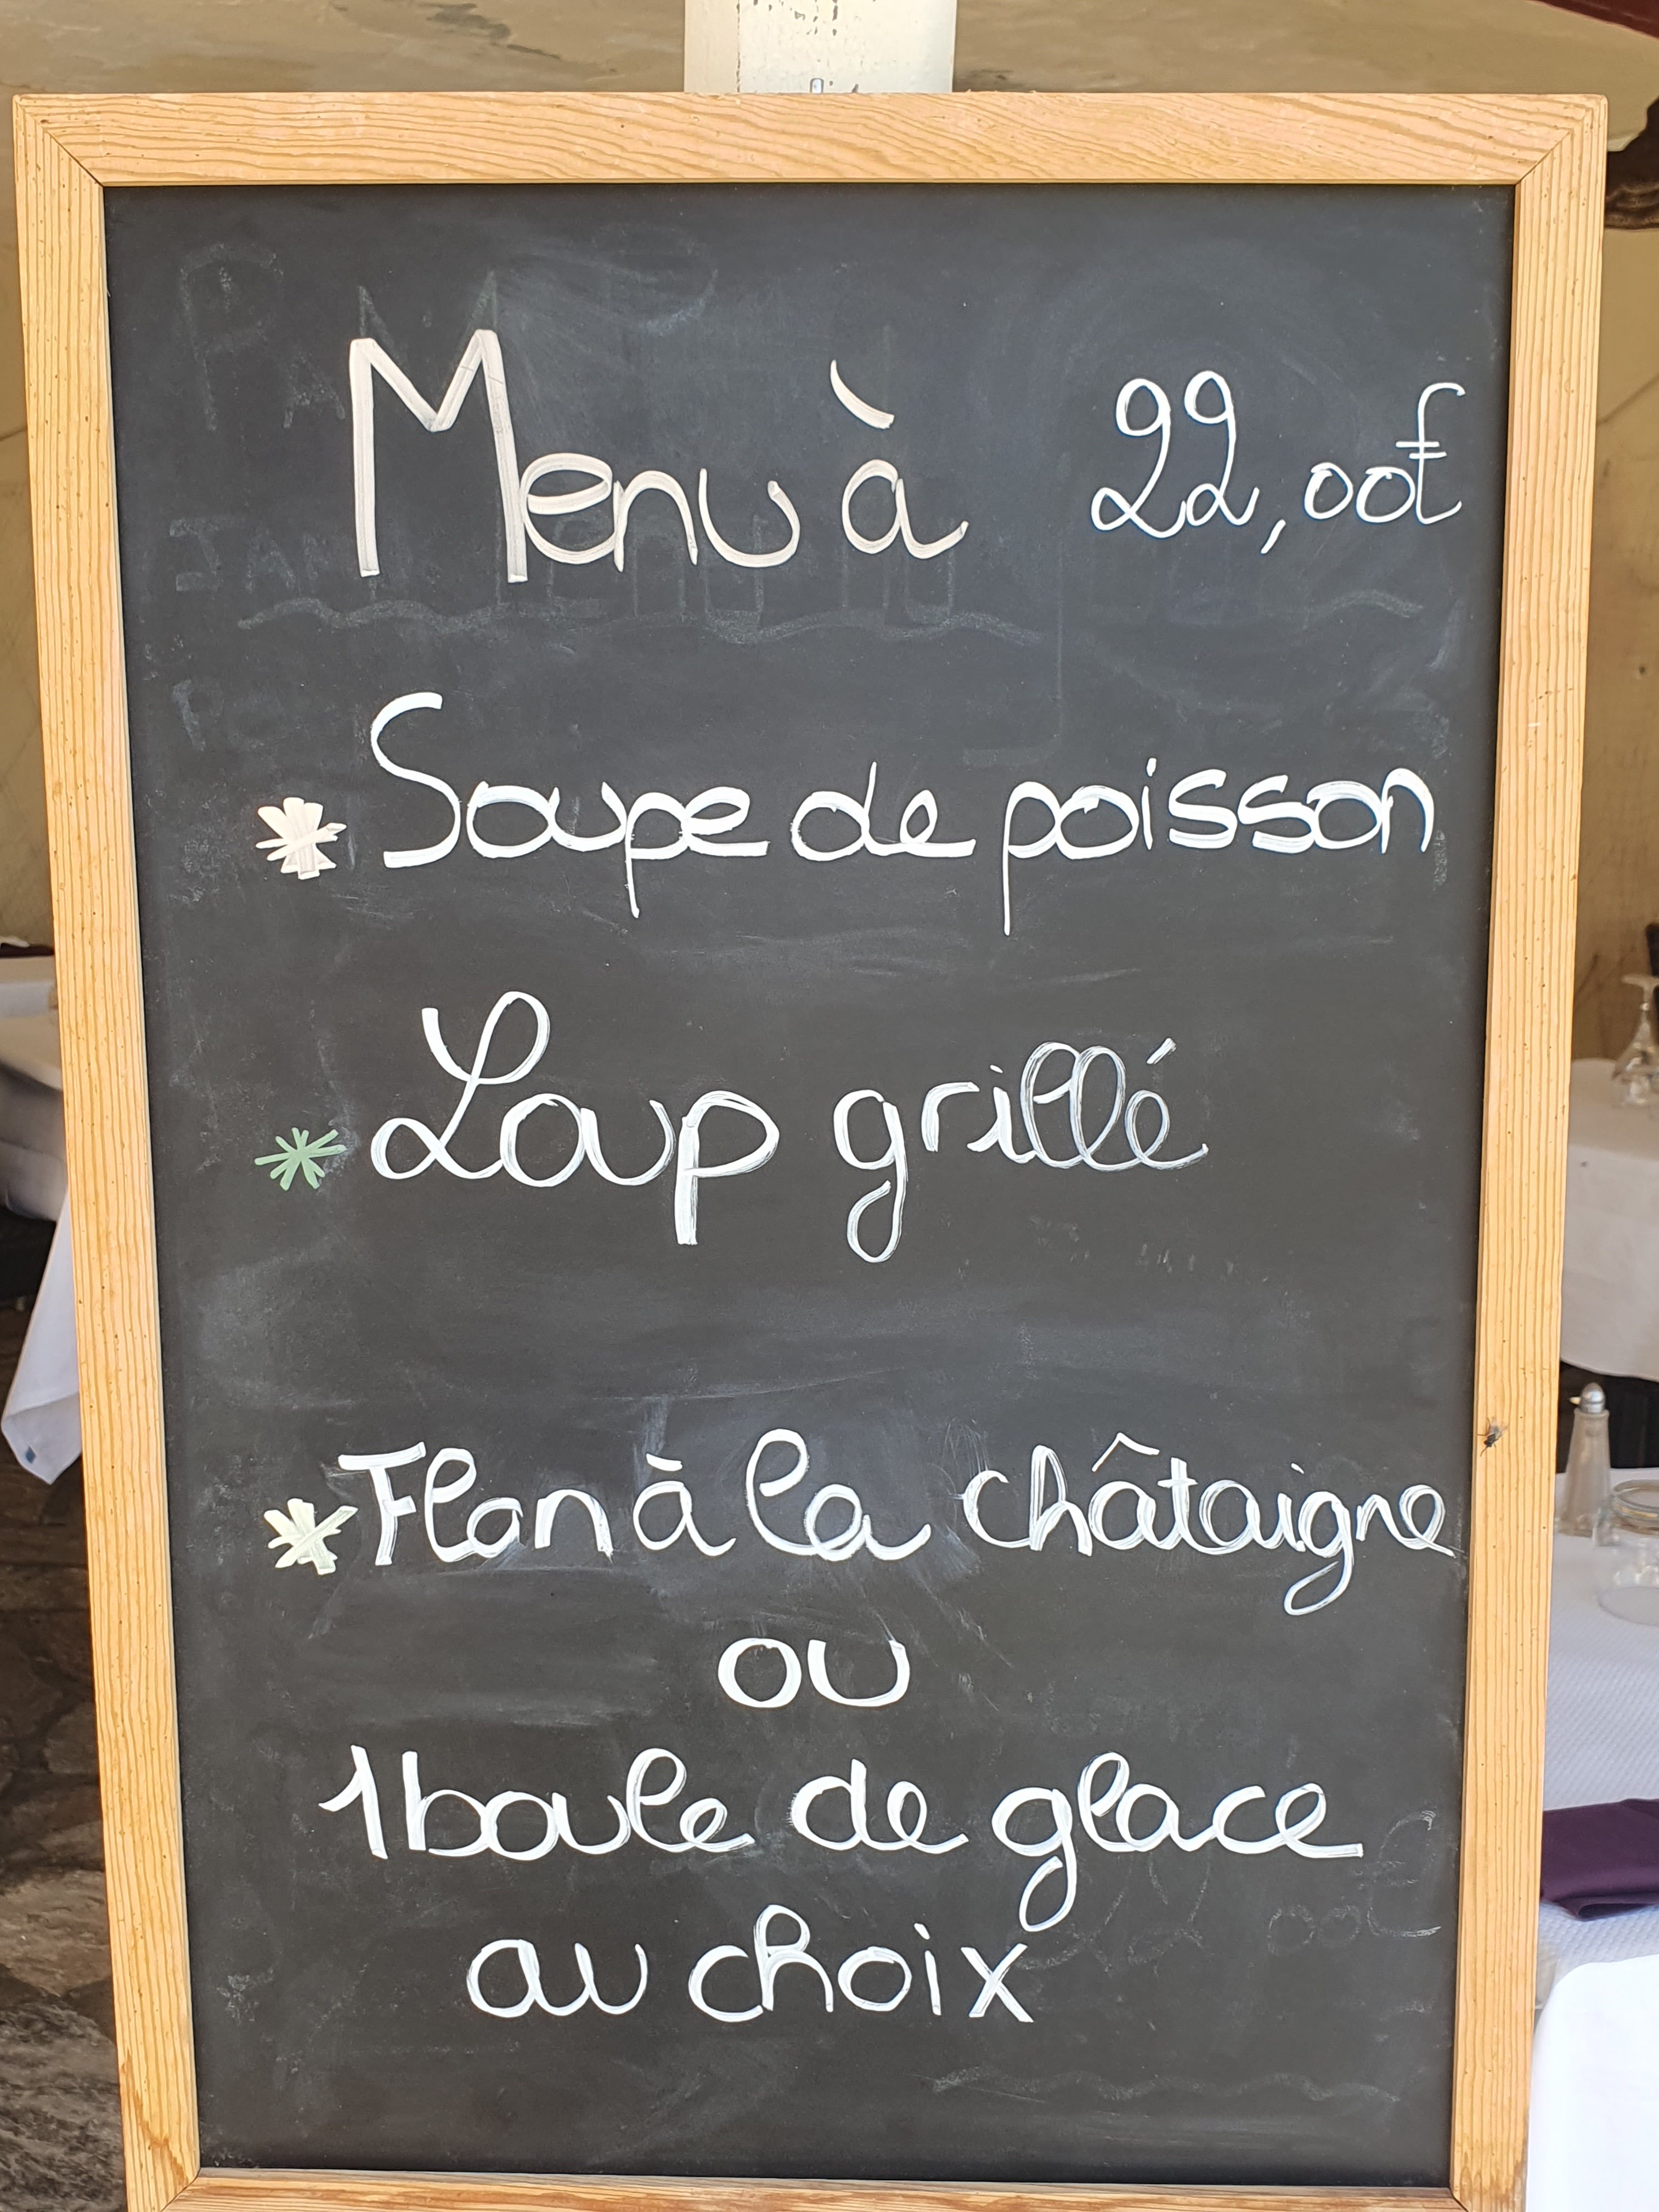 Menu à 22,00£
* Soupe de poisson
* Loup grillé
* Flan à la châtaigne
ou
1 boule de glace
au choix